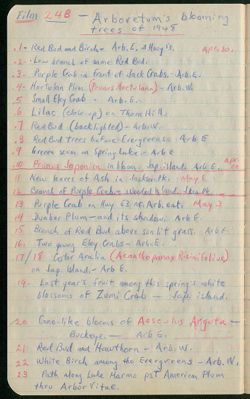 Film 24B - Arboretum's blooming
trees of 1948
1. Red Bud and Birch - Arb. E. Apr. 30.
2. Low branch of same Red Bud.
3. Purple Crab in front of Jack Crabs. - Arb. E.
4. Hortulan Plum (Prunus Hortulana) - Arb. W.
5 Small Eley Crab - Arb. E.
6 Lilac (close-up) on Thorn Hill.
7 Red Bud (backlighted) - Arb. W.
8 Red Bud trees before Evergreens - Arb. E
9 scene on Spring Lake - Arb. E
10 Prunus Japonica in bloom, Jap. island - Arb. E.
11 New leaves of Ash in - May 6
12 Branch of Purple Crab -
13 Purple Crab on Hwy 63, Arb. east. May 3
14 Dunbar Plum - and its shadow. Arb E.
15 Branch of Red Bud above sunlit grass. Arb E
16. Two young Eley Crabs - Arb. E.
17/18 Castor Aralia (Acanthopanax Ricinifolius)
on Jap. island. - Arb E.
19. Last year's fruit among this spring's white
blossoms of Zumi Crab - Jap. island.
20 Cone-like blooms of Aesculus Arguta -
Buckeye. - Arb E.
21. Red Bud and Hawthorn - Arb. W.
22 White Birch among the Evergreens - Arb. W.
23 Path along Lake Harmo pst American Plum
thru Arbor Vitae.